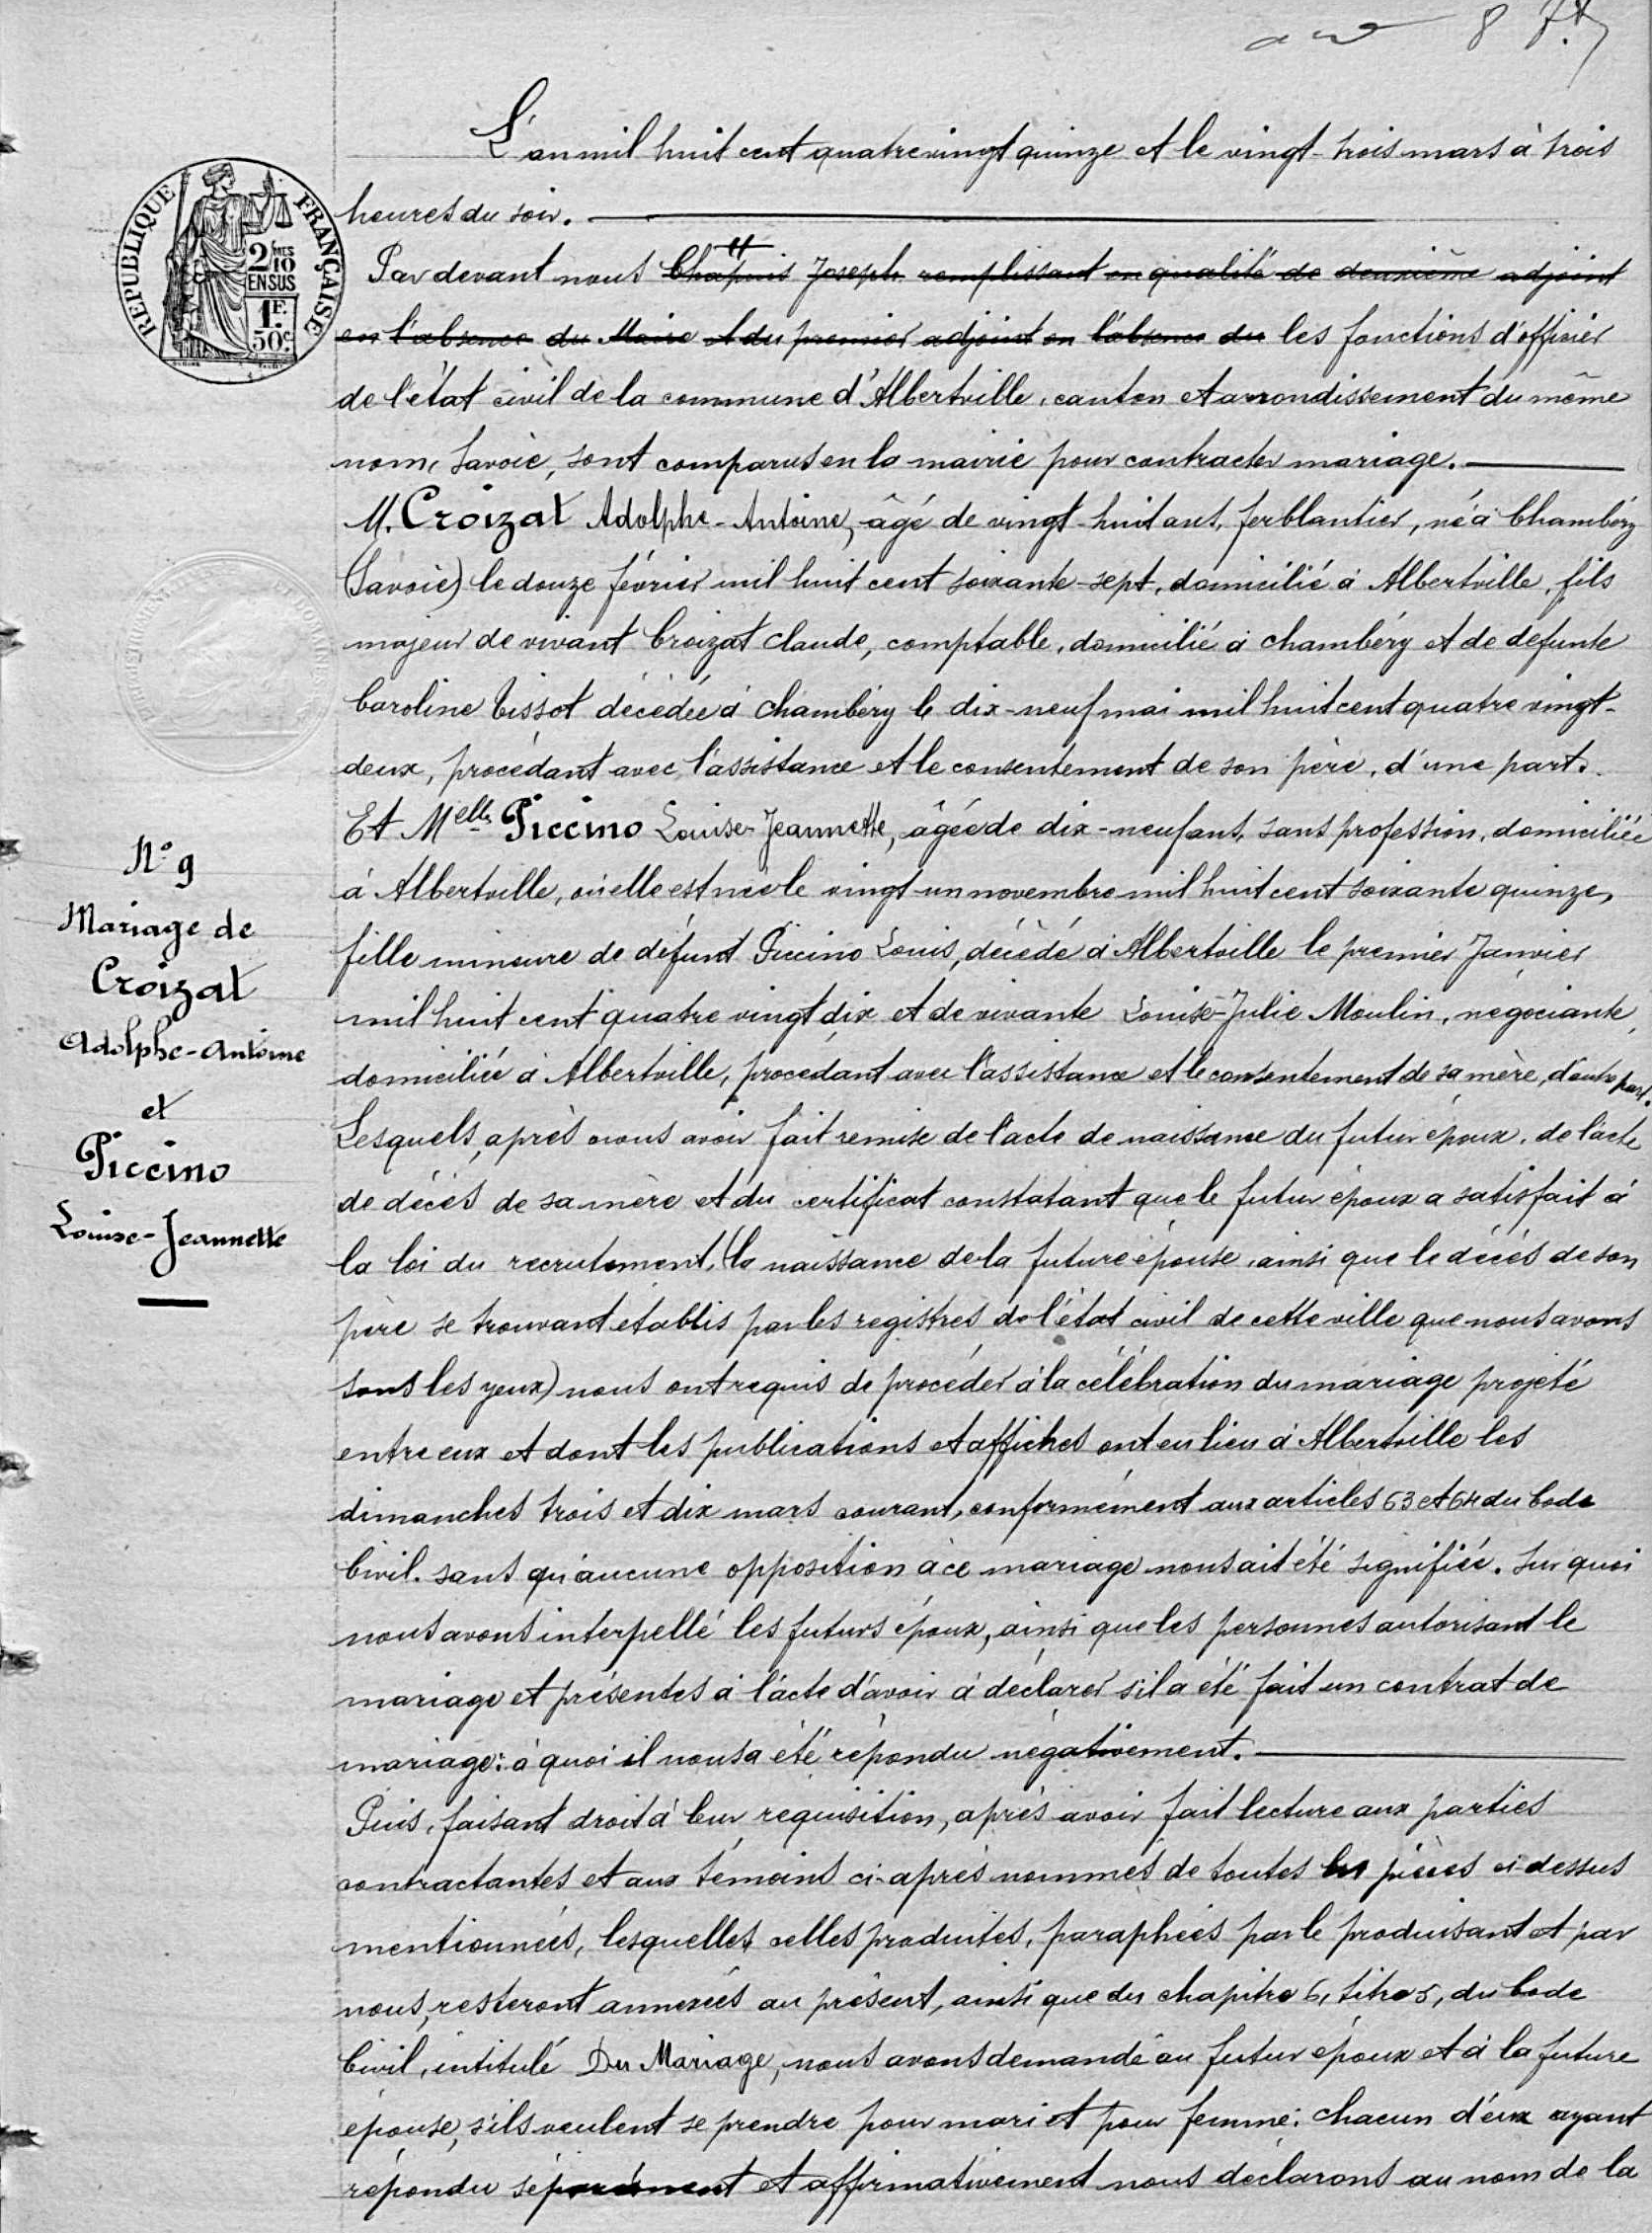 L'an mil huit cent quatre vingt quinze et le vingt-trois mars à trois
heures du soir.
REPUBLIQUE FRANÇAISE
2 10MES EN SUS
1F. 50c.
Par devant nous Chapuis Joseph remplissant en qualité de deuxième adjoint
en l'absence du Maire et du premier adjoint en l'absence du les fonctions d'officier
de l'état civil de la commune d'Albertville, canton et arrondissement du même
nom, Savoie, sont comparus en la mairie pour contracter mariage.
M. Croizat Adolphe-Antoine, âgé de vingt-huit ans, ferblantier, né à Chambéry
(Savoie) le douze février mil huit cent soixante-sept, domicilié à Albertville, fils
majeur de vivant Croizat Claude, comptable, domicilié à Chambéry et de défunte
Caroline Tissot décédée à Chambéry le dix-neuf mai mil huit cent quatre vingt-
deux, procédant avec l'assistance et le consentement de son père, d'une part.
Et Melle Piccino Louise-Jeannette, âgée de dix-neuf ans, sans profession, domiciliée
à Albertville, où elle est née le vingt-un novembre mil huit cent soixante quinze,
fille mineure de défunt Piccino Louis, décédé à Albertville le premier Janvier
mil huit cent quatre vingt dix et de vivante Louise-Julie Moulin, négociante,
domiciliée à Albertville, procédant avec l'assistance et le consentement de sa mère, d'autre part.
Lesquels, après nous avoir fait remise de l'acte de naissance du futur époux, de l'acte
de décès de sa mère et du certificat constatant que le futur époux a satisfait à
la loi du recrutement, (la naissance de la future épouse, ainsi que le décès de son
père se trouvant établis par les registres de l'état civil de cette ville que nous avons
sous les yeux) nous ont requis de procéder à la célébration du mariage projeté
entre eux et dont les publications et affiches ont eu lieu à Albertville les
dimanches trois et dix mars courant, conformément aux articles 63 et 64 du Code
Civil, sans qu'aucune opposition à ce mariage nous ait été signifiée. Sur quoi
nous avons interpellé les futurs époux, ainsi que les personnes autorisant le
mariage et présentes à l'acte d'avoir à déclarer s'il a été fait un contrat de
mariage: à quoi il nous a été répondu négativement.
Puis, faisant droit à leur réquisition, après avoir fait lecture aux parties
contractantes et aux témoins ci-après nommés de toutes les pièces ci-dessus
mentionnées, lesquelles celles produites, paraphées par le produisant et par
nous, resteront annexées au présent, ainsi que du chapitre 6, titre 5, du Code
Civil, intitulé Du Mariage, nous avons demandé au futur époux et à la future
épouse, s'ils veulent se prendre pour mari et pour femme; chacun d'eux ayant
répondu séparément et affirmativement nous déclarons au nom de la
N° 9
Mariage de
Croizat
Adolphe-Antoine
et
Piccino
Louise-Jeannette